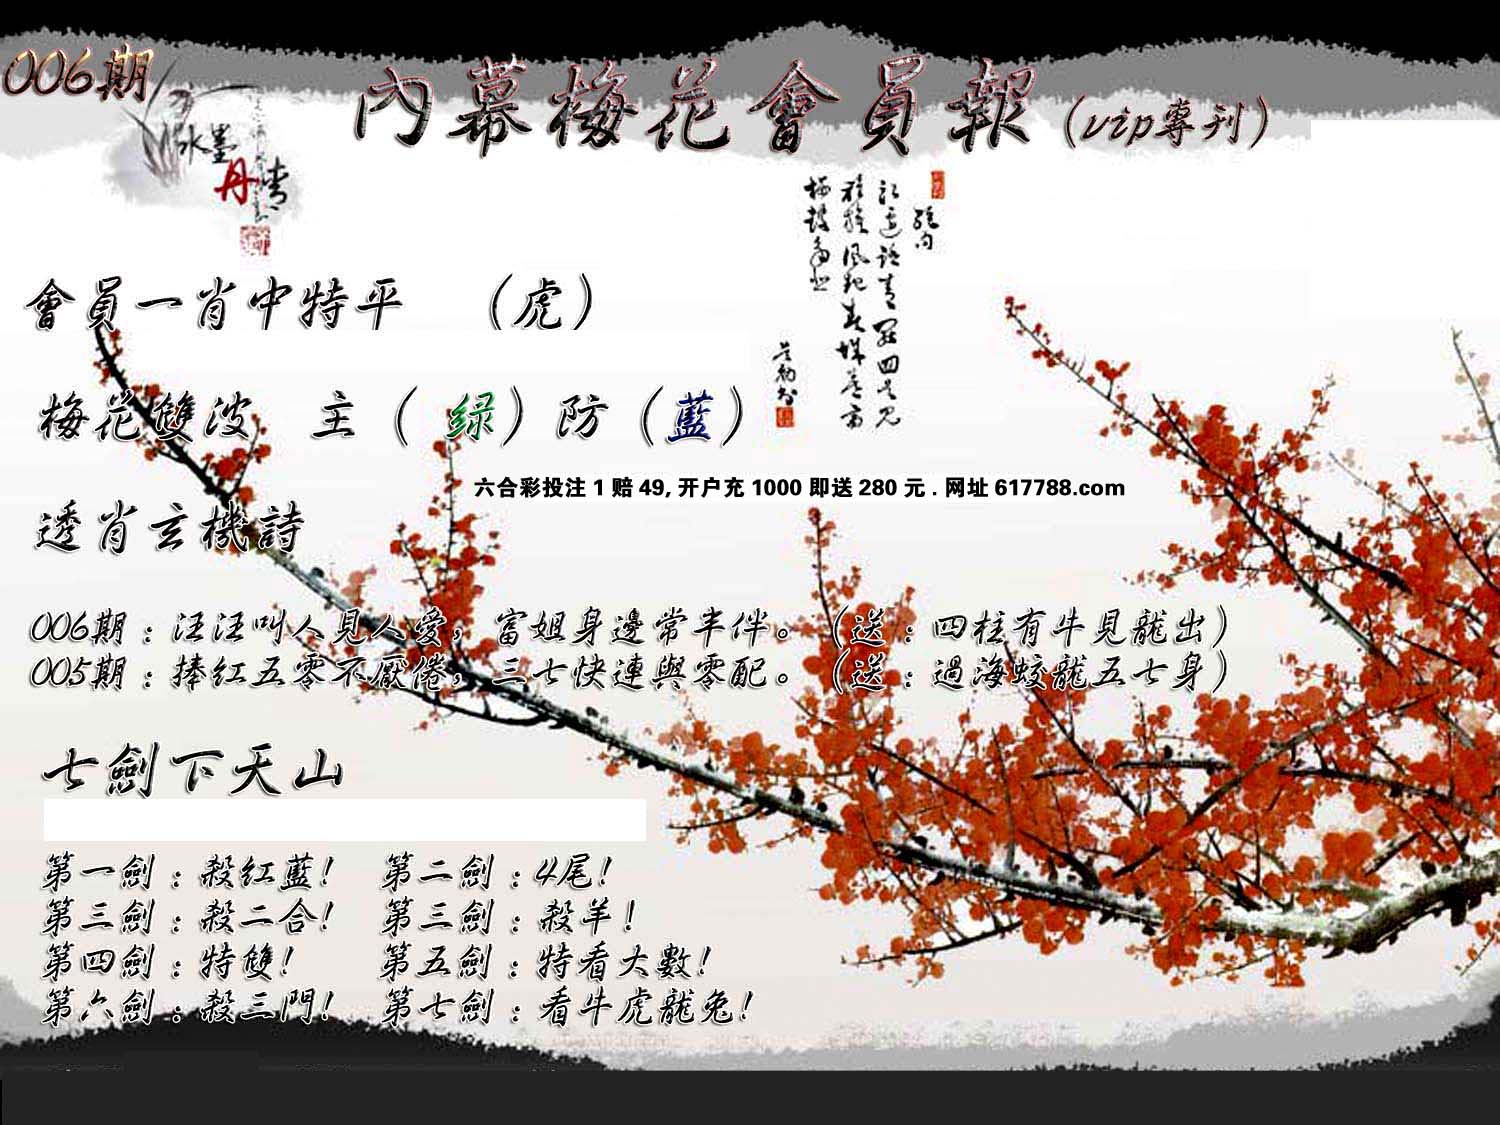 006期
內幕梅花會員報(vip專刊)
水墨
丹情
會員一肖中特平 (虎)
梅花雙波 主(绿)防(藍)
六合彩投注1赔49,开户充1000即送280元.网址617788.com
透肖玄機詩
006期:汪汪叫人見人愛,富姐身邊常丰伴。(送:四柱有牛見龍出)
005期:捧红五零不厭倦,三七快連與零配。(送:過海蛟龍五七身)
七劍下天山
第一劍:殺红藍! 第二劍:4尾!
第三劍:殺二合! 第三劍:殺羊!
第四劍:特雙! 第五劍:特看大數!
第六劍:殺三門! 第七劍:看牛虎龍兔!